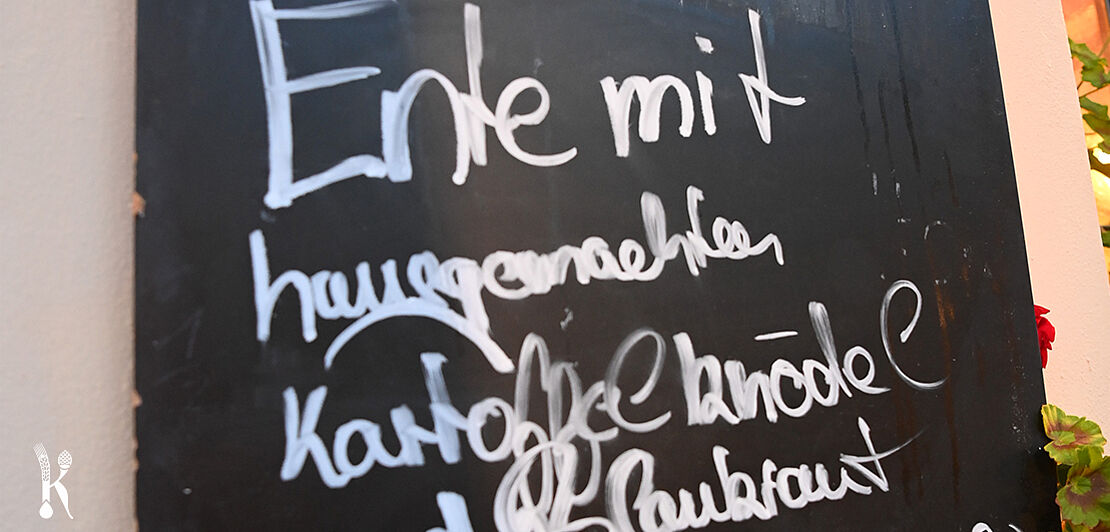 Ente mit
hausgemachten
Kartoffelknödel
Blaukraut
K